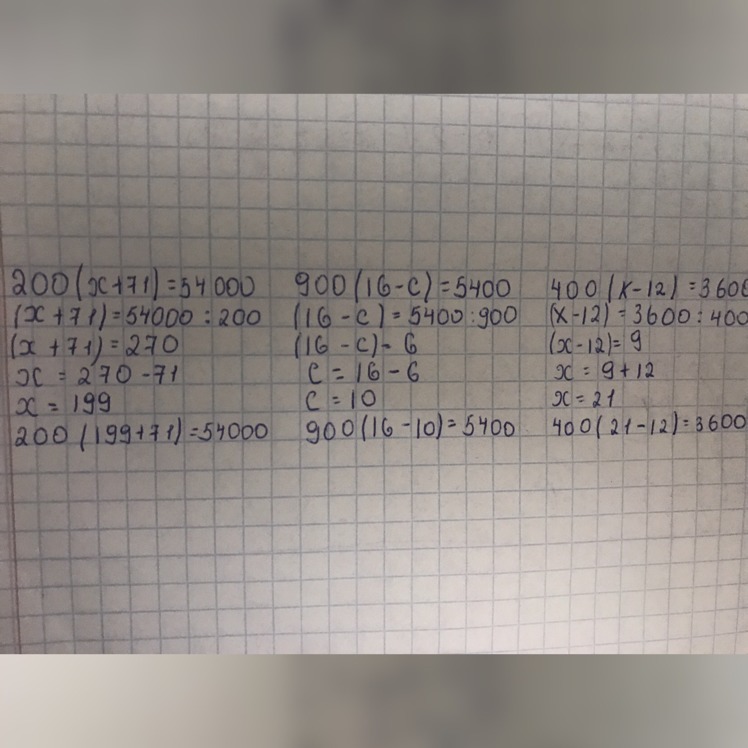 200(x+71)=54000
(x+71)=54000:200
(x+71)=270
x=270-71
x=199
200(199+71)=54000
900(16-c)=5400
(16-c)=5400:900
(16-c)=6
c=16-6
c=10
900(16-10)=5400
400(x-12)=3600
(x-12)=3600:400
(x-12)=9
x=9+12
x=21
400(21-12)=3600